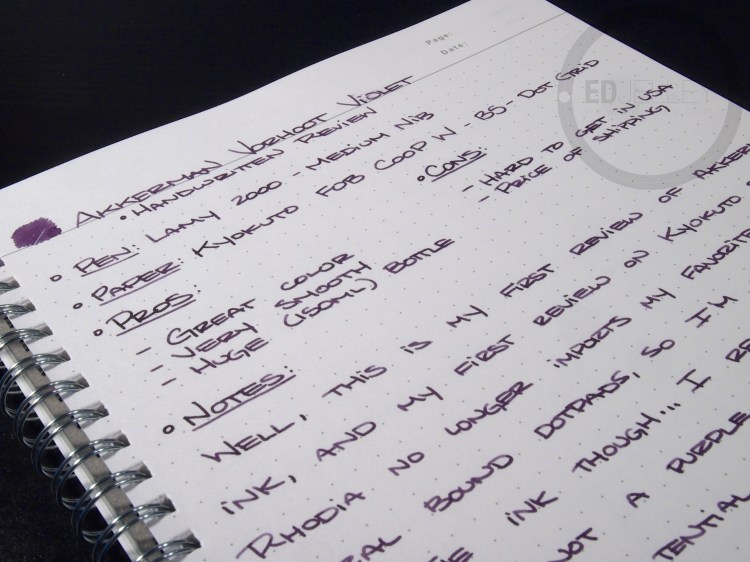 Page:
Date:
ED
AKKERMAN VOORHOUT VIOLET
• HANDWRITTEN REVIEW
• PEN: LAMY 2000 - MEDIUM NIB
• PAPER: KYOKUTO FOB COOP W - B5 - DOT GRID
• PROS:
- GREAT COLOR
- VERY SMOOTH
- HUGE (150ML) BOTTLE
• CONS:
- HARD TO GET IN USA
- PRICE OF SHIPPING
• NOTES:
WELL, THIS IS MY FIRST REVIEW OF AKKER
INK, AND MY FIRST REVIEW ON KYOKUTO
RHODIA NO LONGER IMPORTS MY FAVORIT
RAL BOUND DOTPADS, SO I'M
INK THOUGH... I RE
NOT A PURPLE
TENTIAL